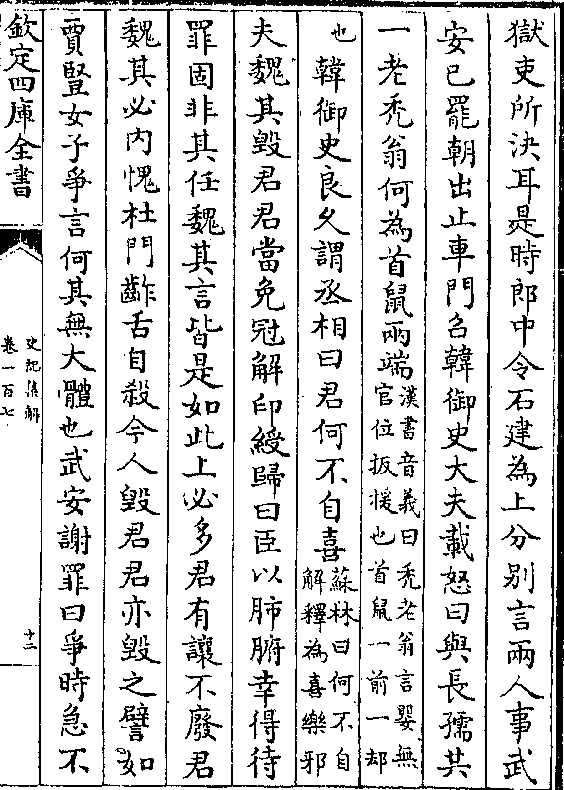 獄吏所決耳是時郎中令石建為上分别言兩人事武
安已罷朝出止車門召韓御史大夫載怒曰與長孺共
一老秃翁何為首鼠兩端漢書音義曰秃老翁言嬰無
官位扳援也首鼠一前一却
也韓御史良久謂丞相曰君何不自喜蘇林曰何不自
解釋為喜樂邪
夫魏其毁君君當免冠解印綬歸曰臣以肺腑幸得待
罪固非其任魏其言皆是如此上必多君有讓不廢君
魏其必内愧杜門齰舌自殺今人毁君君亦毁之譬如
賈豎女子爭言何其無大體也武安謝罪曰爭時急不
欽定四庫全書
史記集解
卷一百七
十二